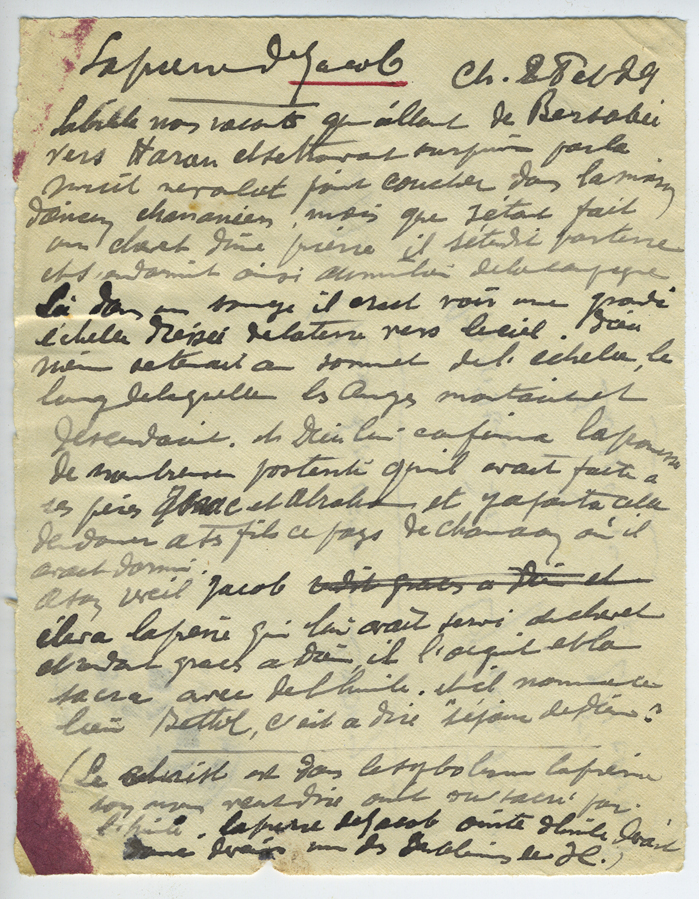 La pierre de Jacob Ch. 2 Feb 29
la bible nous raconte qu'allant de Bersabée
vers Haran et se trouvant surpris par la
nuit ne voulut point coucher dans la maison
d'aucun chananéen, mais que s'étant fait
un chevet d'une pierre il s'étendit par terre
et s'endormit ainsi au milieu de la campagne
Là dans un songe il crut voir une grande
échelle dressée de la terre vers le ciel. Dieu
même se tenait au sommet de l'échelle, le
long de laquelle les Anges montaient et
descendaient. et Dieu lui confirma la promesse
de nombreuse postérité qu'il avait faite à
ses pères Isaac et Abraham et y ajouta cela
de donner a ses fils ce pays de chanaan où il
avait dormi.
a son réveil Jacob rdit graces a Dieu et
éleva la pierre qui lui avait servi de chevet
et rendant graces a Dieu, il l'oignit et la
sacra avec de l'huile. et il nomma ce
lieu Bethel, c'est a dire "séjour de Dieu"
(Le christ est dans le symbolisme la pierre
son nom veut dire oint ou sacré par
l'huile. la pierre de Jacob ointe d'huile devait
donc devenir un des emblèmes de J C.)